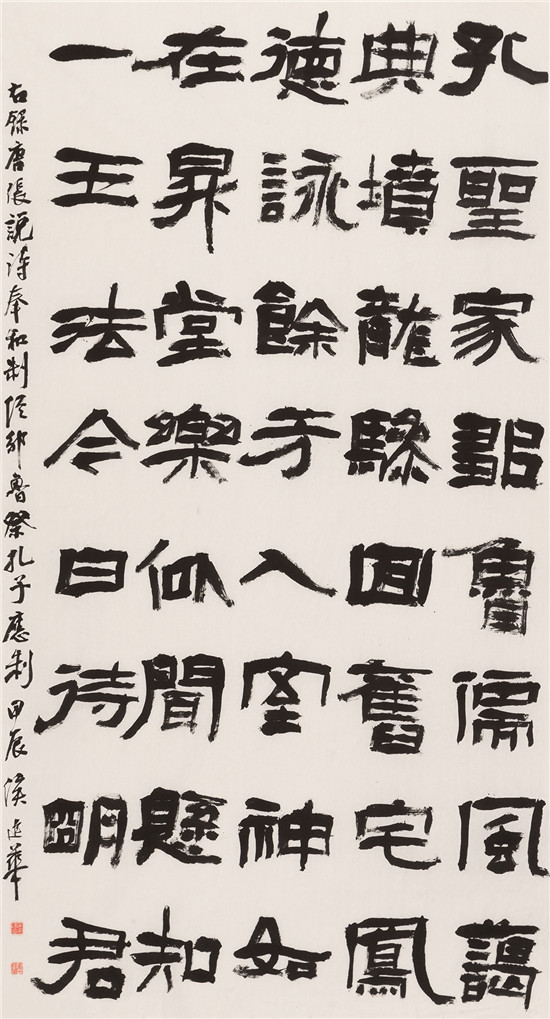 孔聖家鄒魯儒風藹
典墳龍驂回舊宅鳳
德詠餘芳入室神如
在昇堂樂似聞懸知
一王法今日待明君
右錄唐張說詩奉和制經鄒魯祭孔子應制甲辰